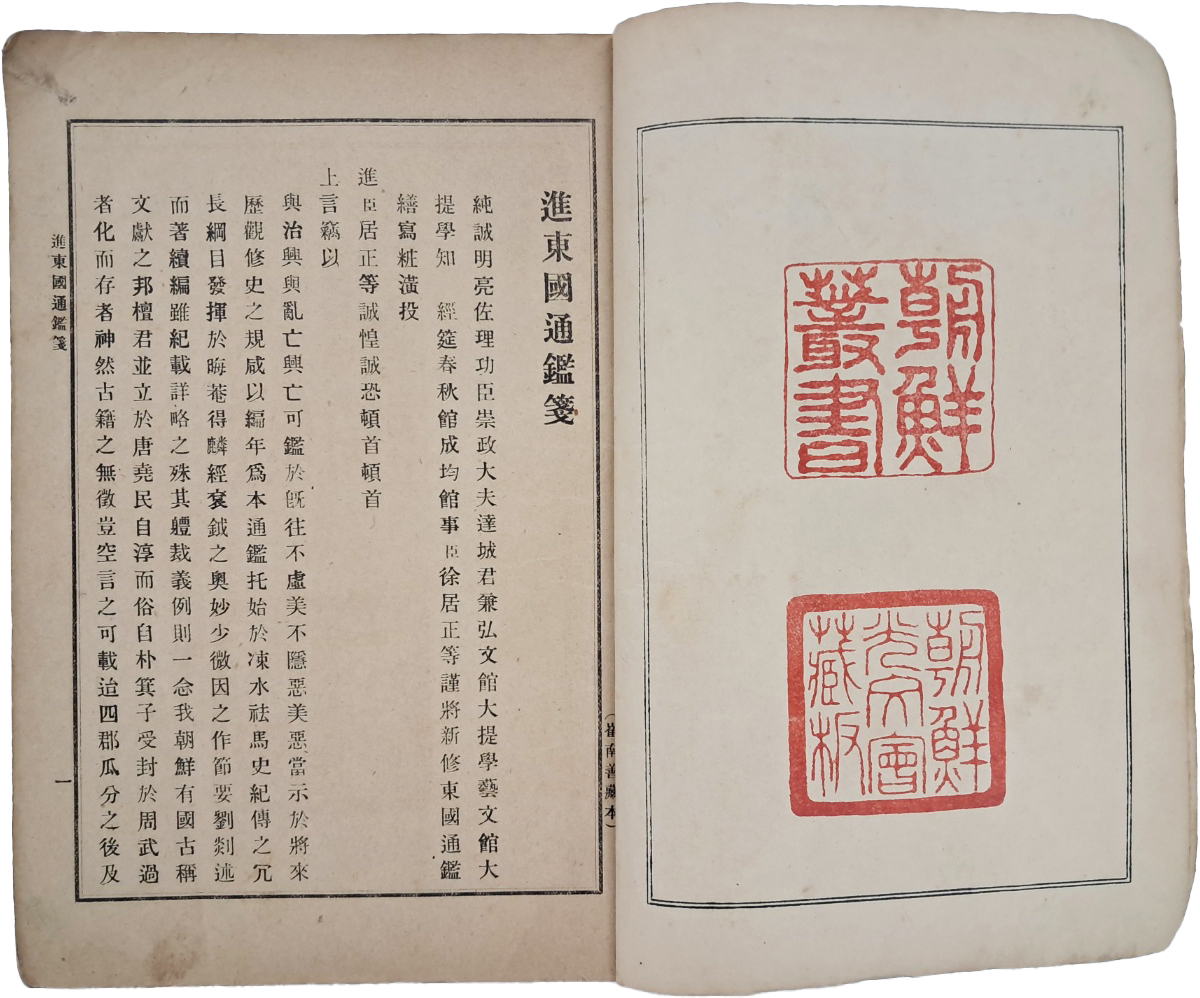 朝鮮
叢書
朝鮮
光文會
藏板
(崔南善藏本)
進東國通鑑箋
純誠明亮佐理功臣崇政大夫達城君兼弘文館大提學藝文館大
提學知 經筵春秋館成均館事臣徐居正等謹將新修東國通鑑
繕寫粧潢投
進臣居正等誠惶誠恐頓首頓首
上言竊以
與治興與亂亡興亡可鑑於旣往不虛美不隱惡美惡當示於將來
歷觀修史之規咸以編年爲本通鑑托始於凍水祛馬史紀傳之冗
長綱目發揮於晦菴得麟經袞鉞之奧妙少微因之作節要劉剡述
而著續編雖紀載詳略之殊其軆裁義例則一念我朝鮮有國古稱
文獻之邦檀君並立於唐堯民自淳而俗自朴箕子受封於周武過
者化而存者神然古籍之無徵豈空言之可載迨四郡瓜分之後及
進東國通鑑箋
一